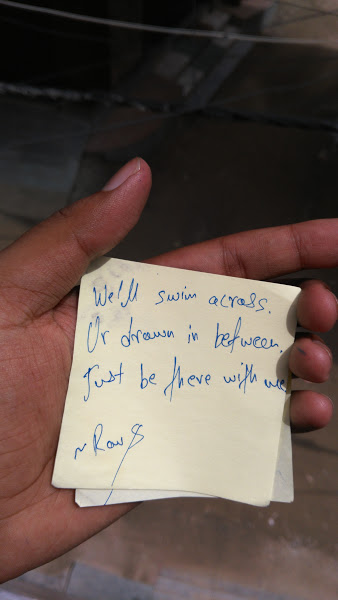 We'll swim across.
Or drown in between.
Just be there with me